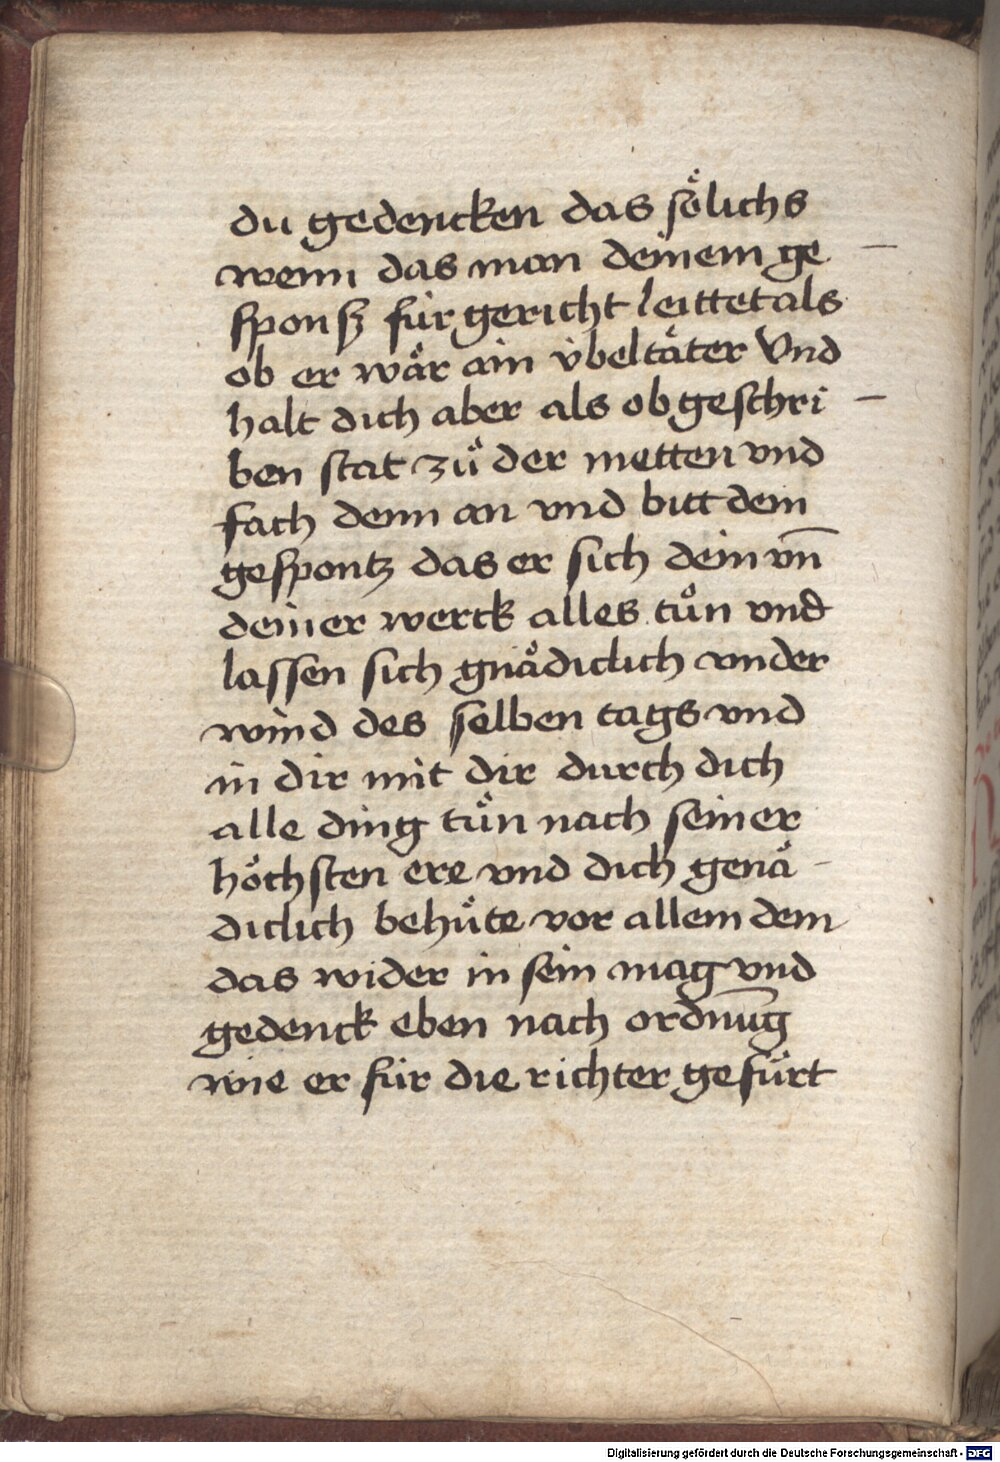 du gedencken das soͤlichs
wenn das man deinem ge
sponsz für gericht leittet als
ob er waͤr ain übeltaͤter Vnd
halt dich aber als ob geschri
ben stat zuͦ der metten vnd
fach denn an vnd bitt dein
gespontz das er sich dein vn̄
deiner werck alles tuͦn vnd
lassen sich gnaͤdiclich vnder
wind des selben tags vnd
in dir mit dir durch dich
alle ding tuͦn nach seiner
hoͤchsten ere vnd dich genaͤ
diclich behuͤte vor allem dem
das wider in sein mag vnd
gedenck eben nach ordnūg
wie er für die richter gefuͤrt
Digitalisierung gefördert durch die Deutsche Forschungsgemeinschaft - DFG